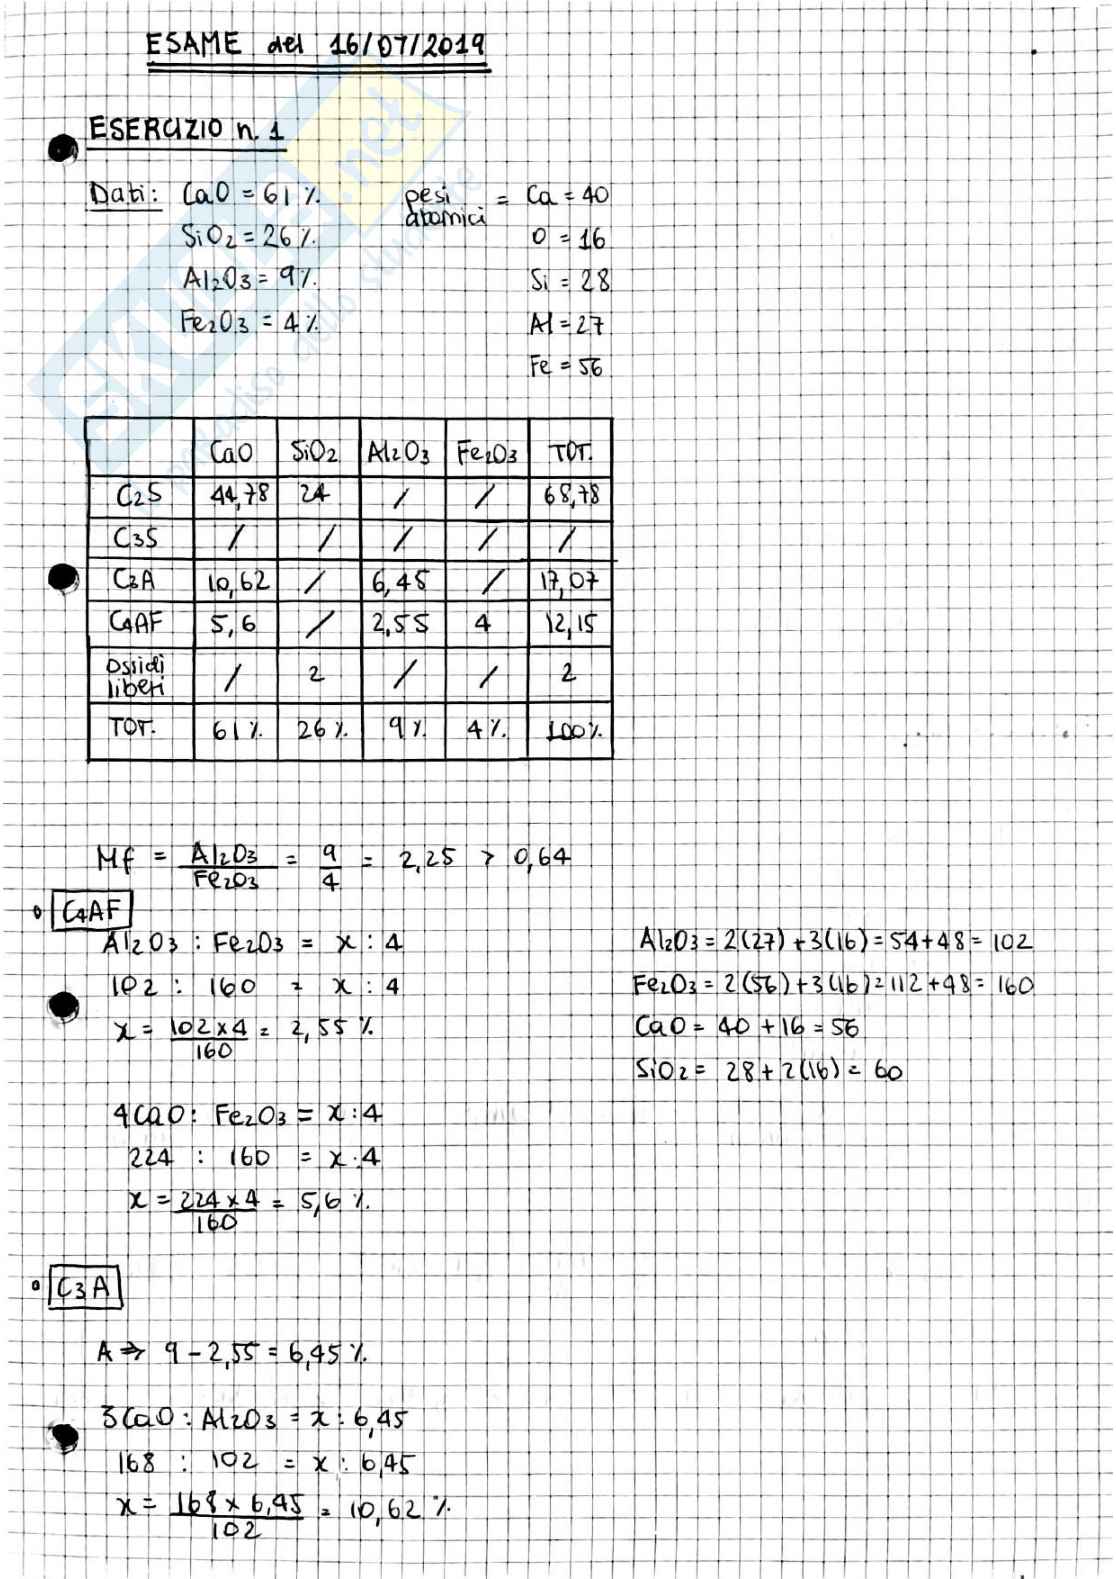 ESAME del 16/07/2019
ESERCIZIO n. 1
Dati: CaO = 61 % pesi atomici = Ca = 40
SiO2 = 26 % O = 16
Al2O3 = 9 % Si = 28
Fe2O3 = 4 % Al = 27
Fe = 56
CaO SiO2 Al2O3 Fe2O3 TOT.
C2S 44,78 24 / / 68,78
C3S / / / / /
C3A 10,62 / 6,45 / 17,07
C4AF 5,6 / 2,55 4 12,15
Ossidi liberi / 2 / / 2
TOT. 61 % 26 % 9 % 4 % 100 %
Mf = Al2O3 / Fe2O3 = 9 / 4 = 2,25 > 0,64
C4AF
Al2O3 : Fe2O3 = x : 4
102 : 160 = x : 4
x = 102 x 4 / 160 = 2,55 %
4CaO : Fe2O3 = x : 4
224 : 160 = x : 4
x = 224 x 4 / 160 = 5,6 %
Al2O3 = 2(27) + 3(16) = 54 + 48 = 102
Fe2O3 = 2(56) + 3(16) = 112 + 48 = 160
CaO = 40 + 16 = 56
SiO2 = 28 + 2(16) = 60
C3A
A ⇒ 9 - 2,55 = 6,45 %
3CaO : Al2O3 = x : 6,45
168 : 102 = x : 6,45
x = 168 x 6,45 / 102 = 10,62 %
SKUOLA.net
paradiso dello studente